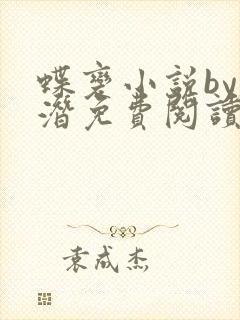 蝶变小说by
潛免費閱讀
袁成杰